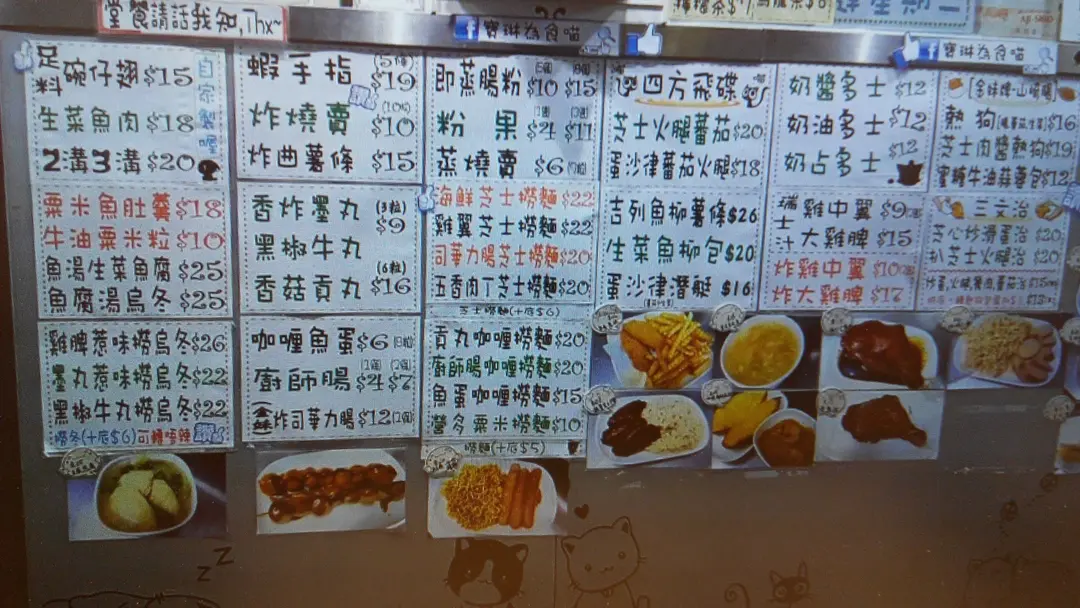 堂餐請話我知,Thx~
寶琳為食喵
寶琳為食喵
足料碗仔翅$15
自家製喔
生菜魚肉$18
2溝3溝$20
粟米魚肚羹$18
牛油粟米粒$10
魚湯生菜魚腐$25
魚腐湯烏冬$25
雞脾惹味撈烏冬$26
墨丸惹味撈烏冬$22
黑椒牛丸撈烏冬$22
撈冬(+底$6)
蝦手指$19
炸燒賣(10粒)$10
炸曲薯條$15
香炸墨丸(3粒)$9
黑椒牛丸
香菇貢丸(6粒)$16
咖喱魚蛋$6
廚師腸$4 $7
炸司華力腸$12
即蒸腸粉$10 $15
粉果$4 $11
蒸燒賣$6
海鮮芝士撈麵$22
雞翼芝士撈麵$22
司華力腸芝士撈麵$20
五香肉丁芝士撈麵$20
芝士撈麵(+底$6)
貢丸咖喱撈麵$20
廚師腸咖喱撈麵$20
魚蛋咖喱撈麵$15
營多粟米撈麵$10
撈麵(+底$5)
四方飛碟
芝士火腿蕃茄$20
蛋沙律蕃茄火腿$18
吉列魚柳薯條$26
生菜魚柳包$20
蛋沙律潛艇$16
奶醬多士$12
奶油多士$12
奶占多士$12
瑞士汁雞中翼$9
大雞脾$15
炸雞中翼$10
炸大雞脾$17
熱狗$16
芝士肉醬熱狗$19
蜜糖牛油蒜蓉包$12
三文治
芝心炒滑蛋治$20
扒芝士火腿治$20